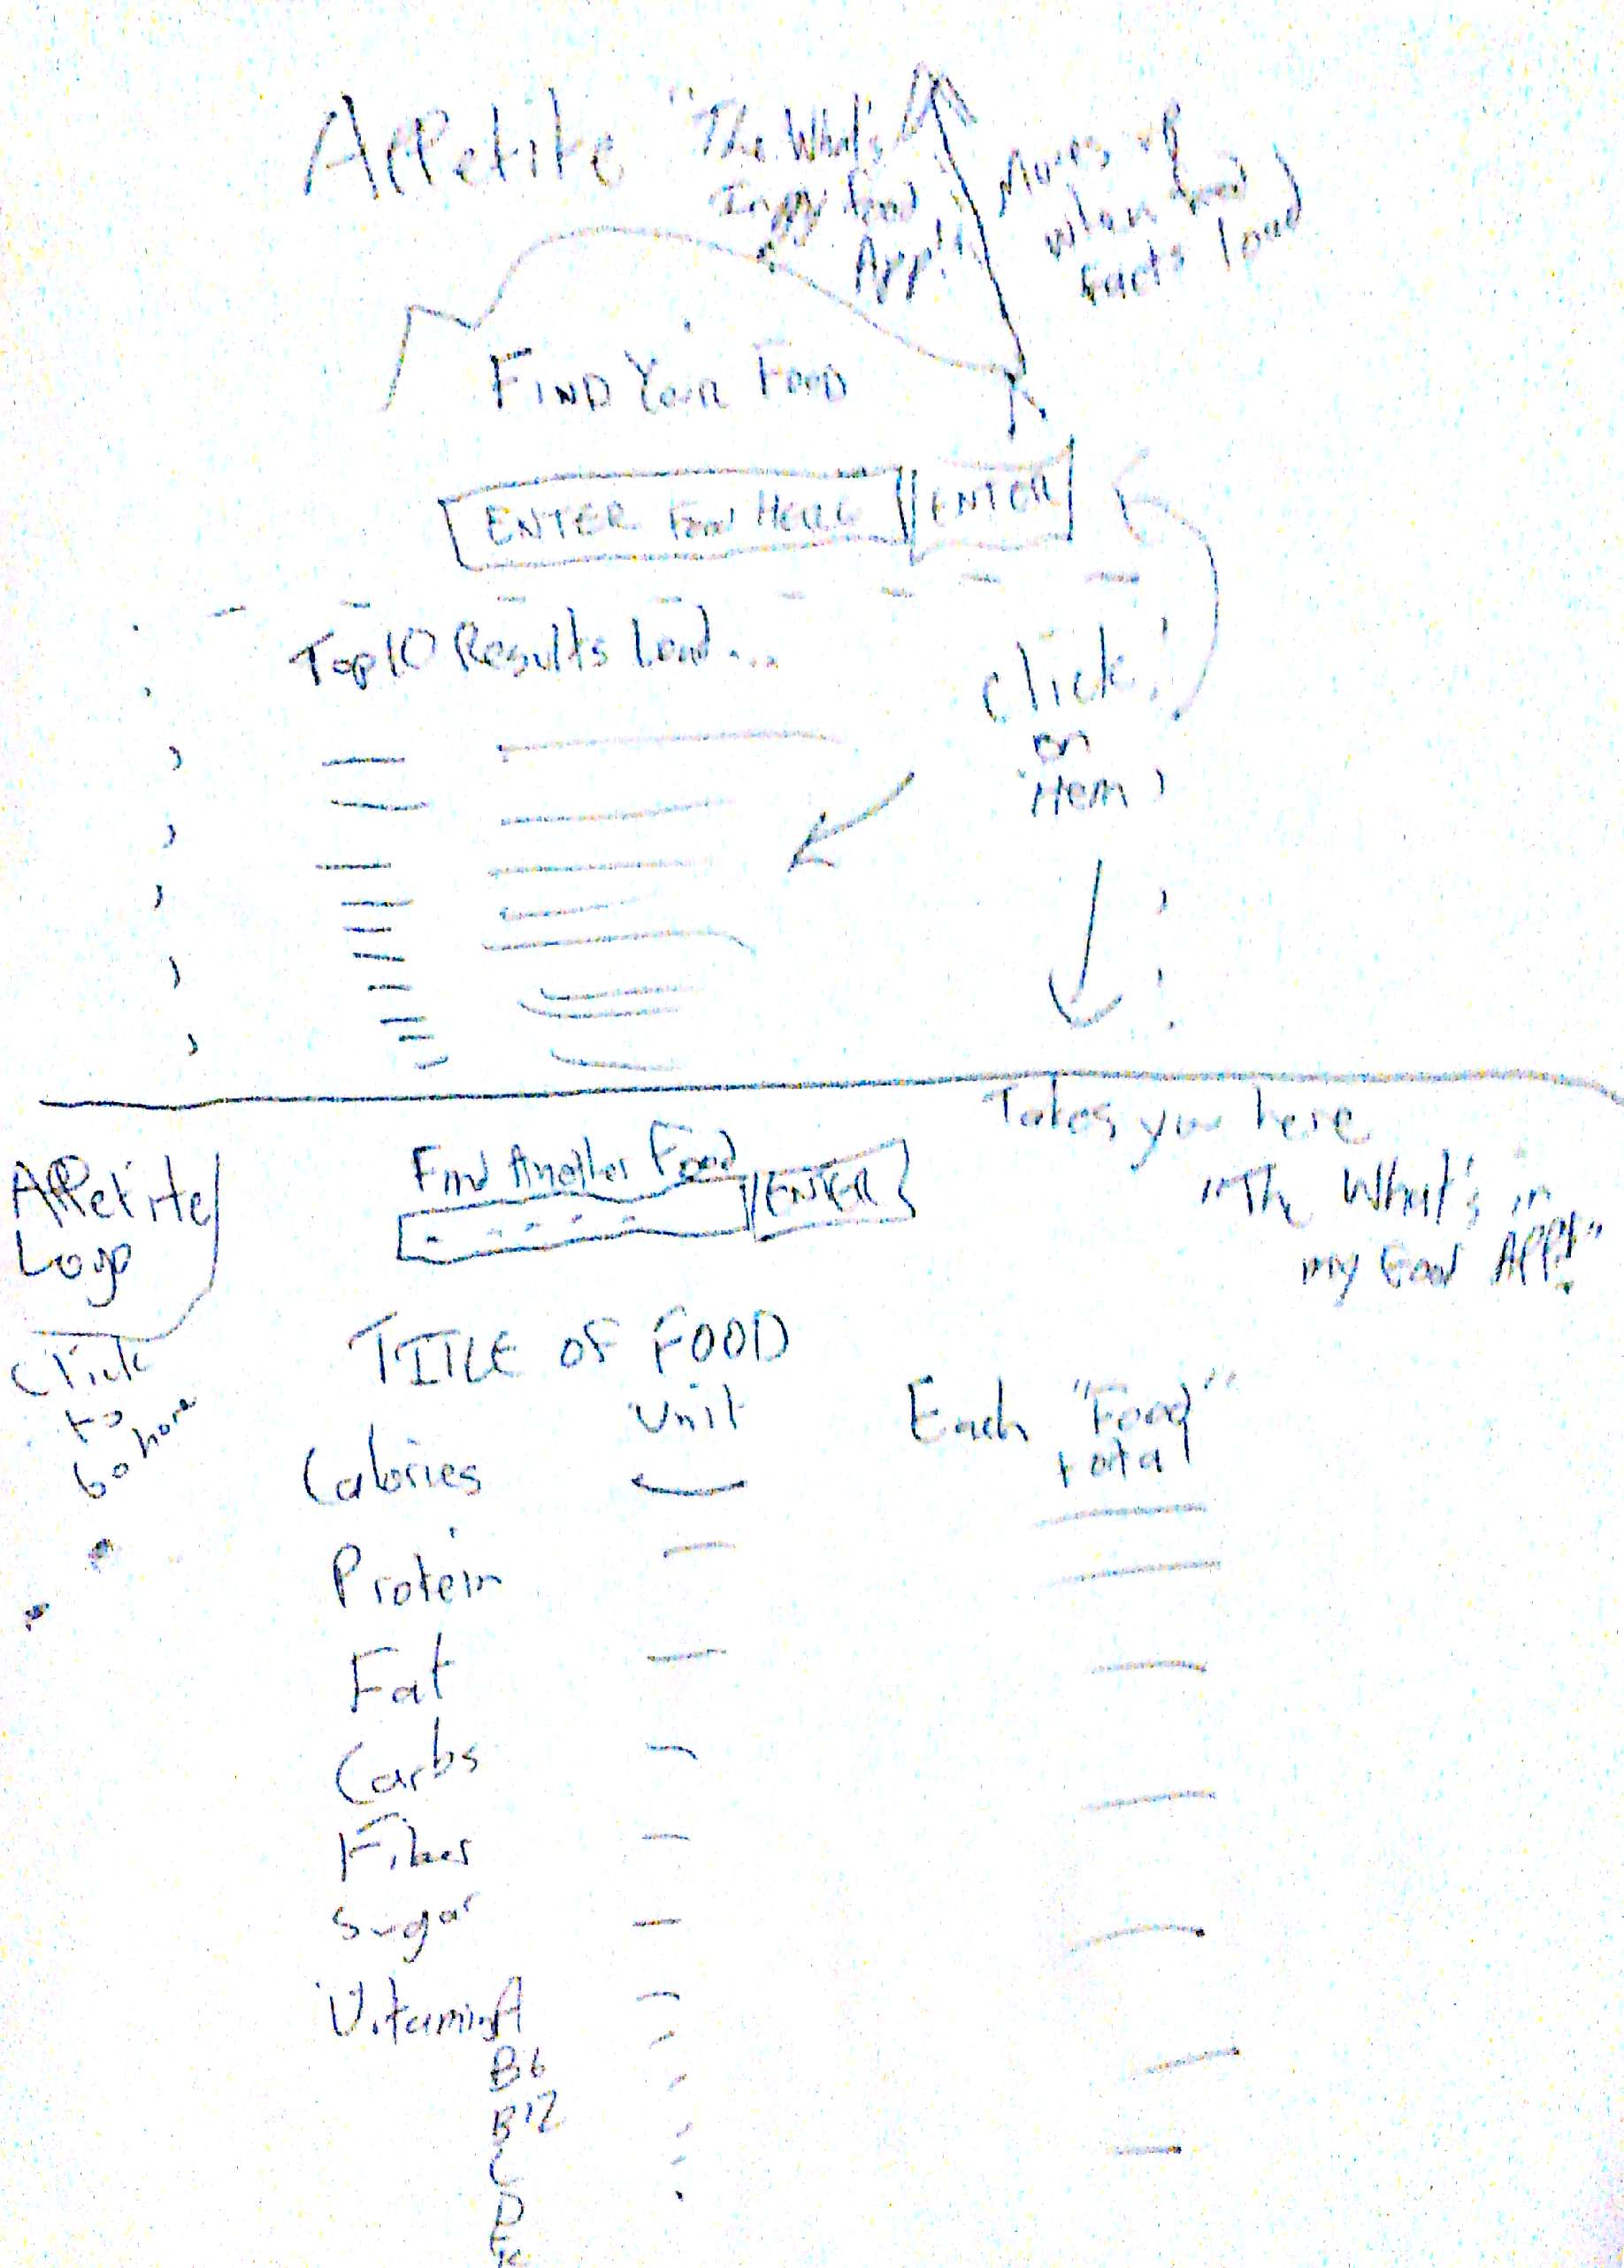 APPetite
"The What's
In my food
App!"
Moves up
when food
facts load
FIND YOUR FOOD
ENTER Food HERE
ENTER
Top 10 Results Load...
click
on
item
Takes you here
APPetite
Logo
Click
to
Go home
Find Another Food
ENTER
"The What's in
my food APP!"
TITLE OF FOOD
Unit
Each "Food"
total
Calories
Protein
Fat
Carbs
Fiber
Sugar
Vitamin A
B6
B12
C
D
E
K